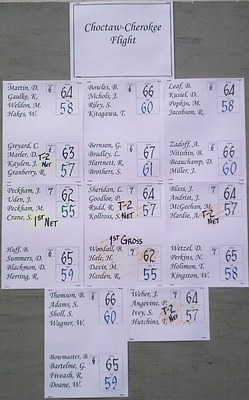 Choctaw-Cherokee
Flight
Martin, D. 6 64
Gaulke, K.
Weldon, M. 58
Hakes, W.
Bowles, B. 6 66
Nichols, J.
Riley, S. 60
Kitagawa, T.
Leaf, B. 6 64
Kusiel, D.
Popkin, M. 58
Jacobson, R.
Greyard, C. 6 63
Marler, D. T-2
Kayden, J. NET
Granberry, R. 57
Bernson, G. 6 67
Bradley, L.
Hartnett, R. 61
Brothers, S.
Zadoff, A. 6 66
Nitishin, B.
Beauchamp, D. 60
Miller, J.
Peckham, J. 7 62
Uden, J.
Peckham, M. 55
Crane, S. 1st NET
Sheridan, L. 7 64
Goodloe, P.
Rudd, R. T-2 57
Kollross, S. NET
Blass, J. 7 64
Andrist, J.
McGeehan, M. 57
Hardie, A. T-2 NET
Huff, B. 6 65
Summers, D.
Blackmon, D. 59
Herring, R.
1st GROSS
Woodall, B. 7 62
Hale, H.
Davis, M. 55
Harden, R.
Wetzel, D. 7 65
Perkins, N.
Holimon, T. 58
Kingston, W.
Thomson, B. 6 66
Adams, S.
Sholl, S. 60
Wagner, W.
Weber, J. 7 64
Angevine, P.
Ivey, S. T-2 57
Hutchins, T. NET
Bowmaster, B. 6 65
Bartelme, G.
Fiveash, R. 59
Doane, W.